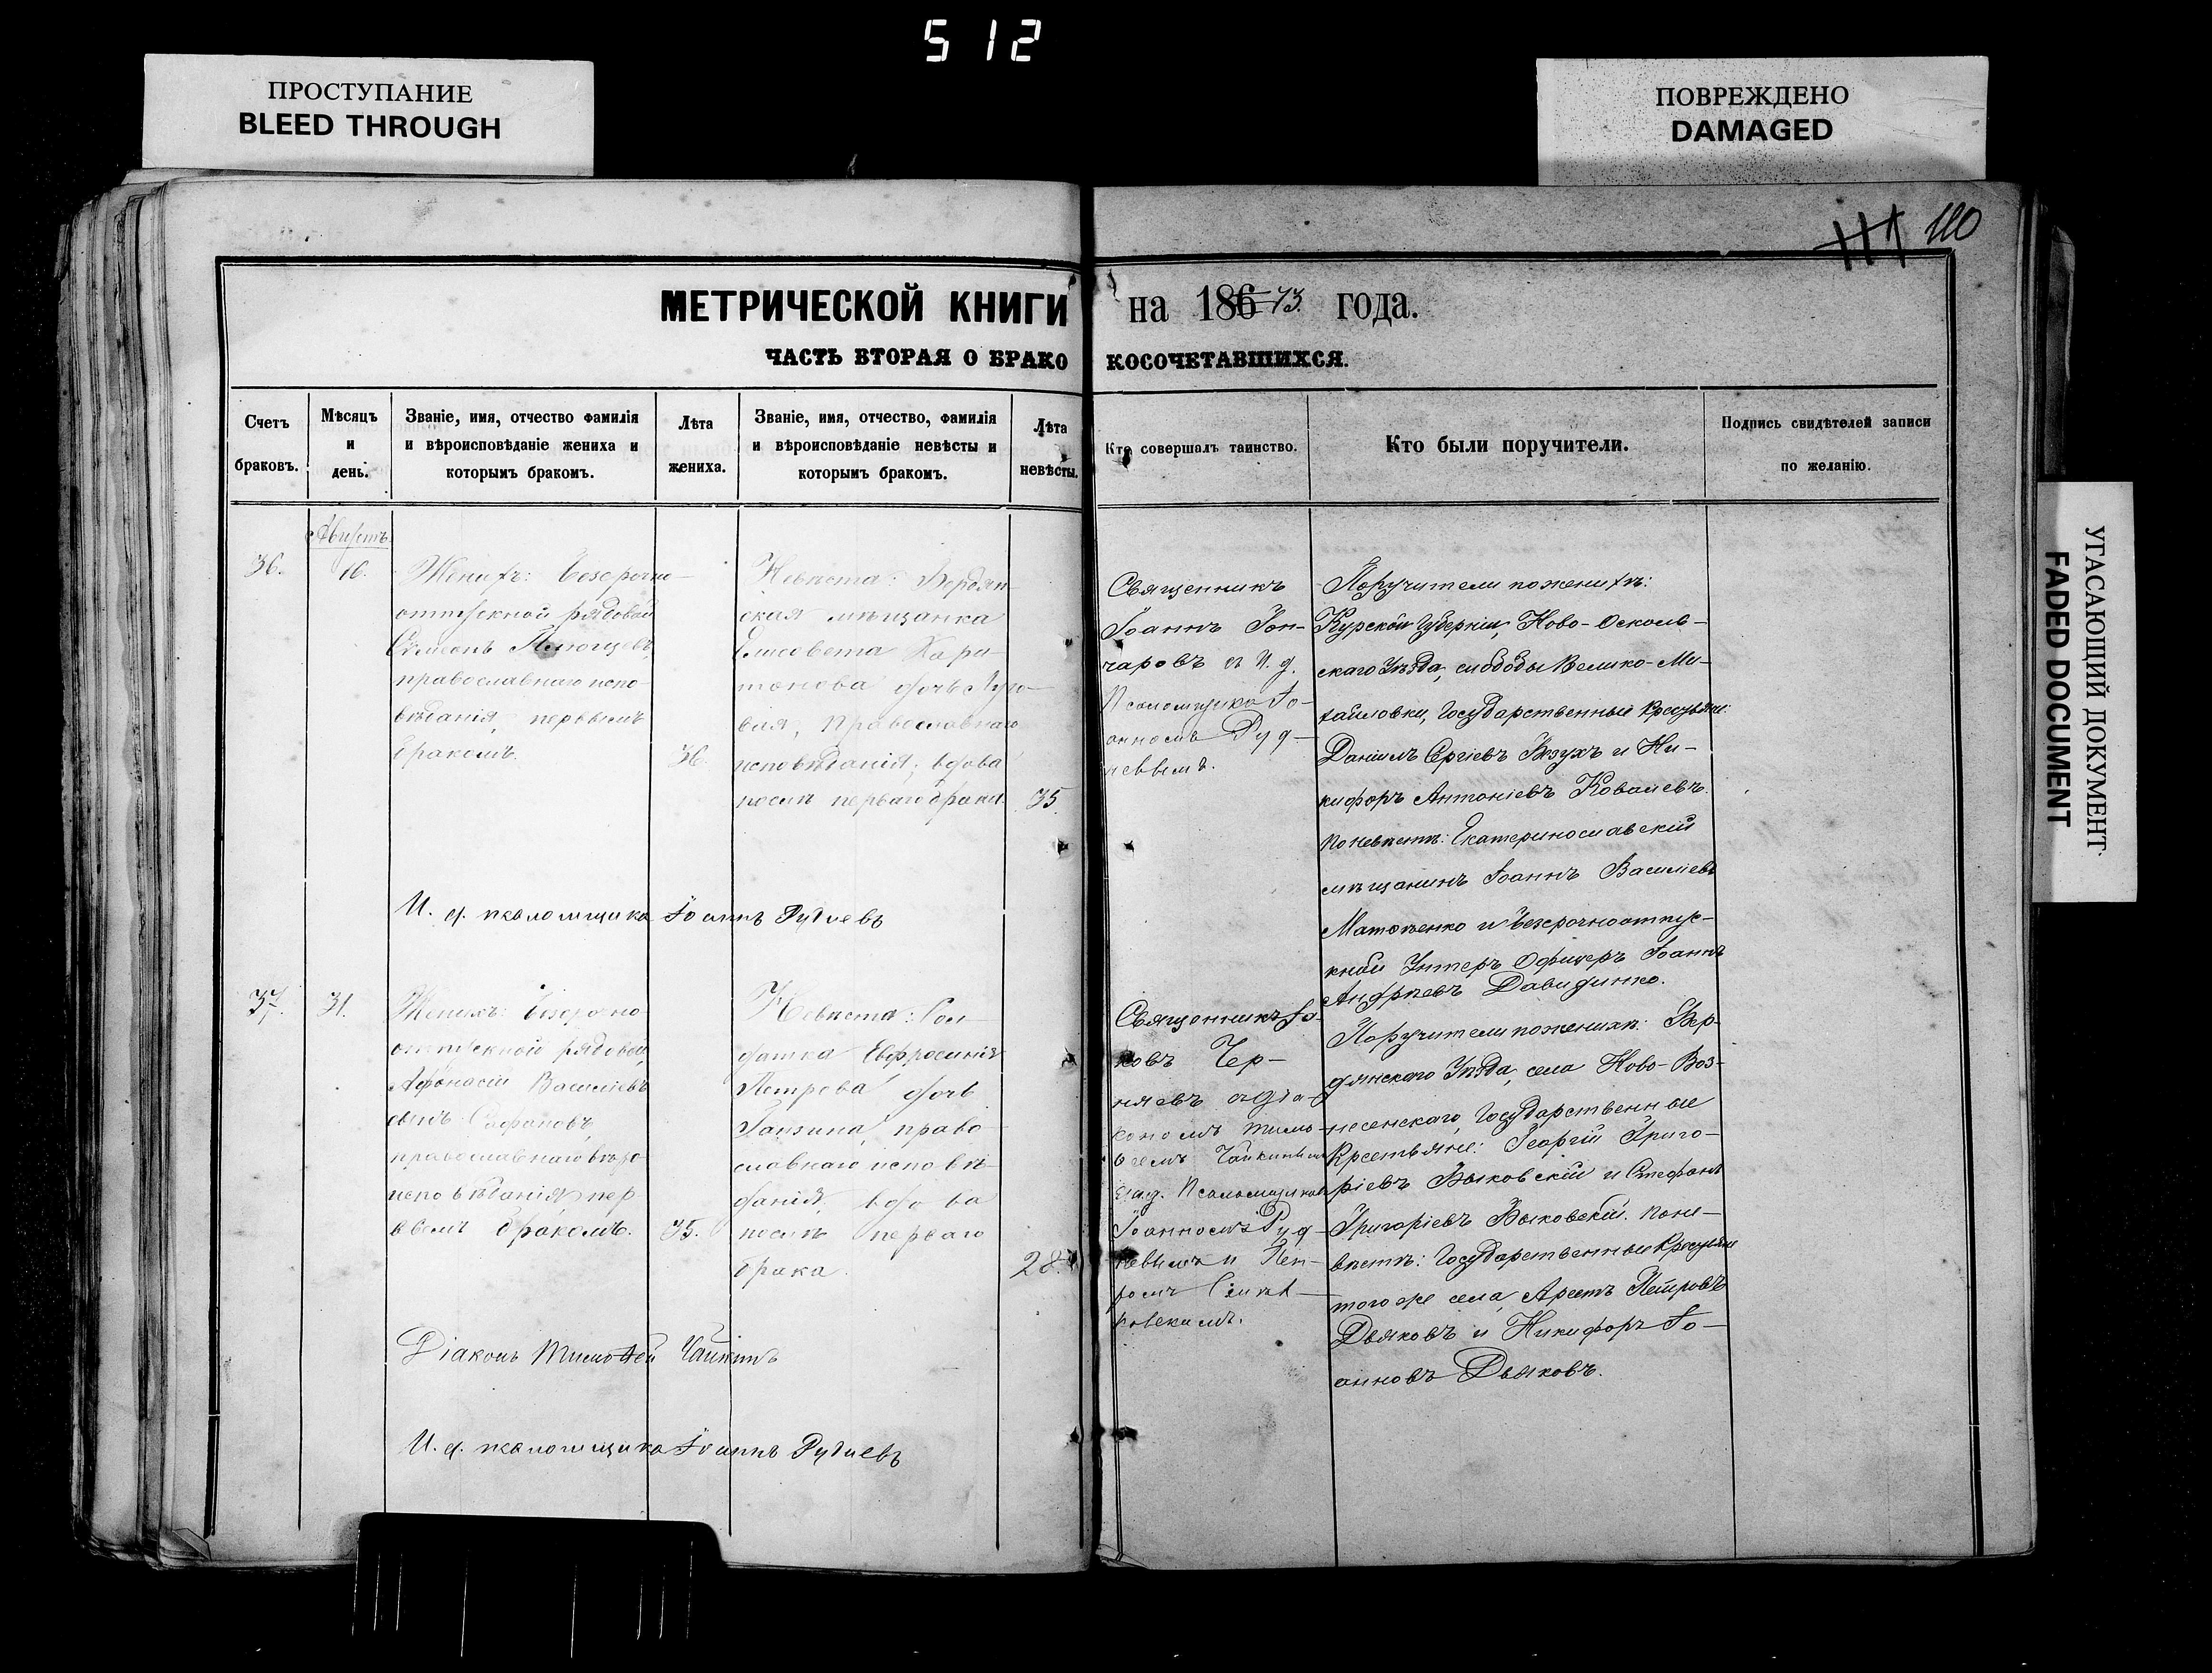 512
ПРОСТУПАНИЕ
BLEED THROUGH
ПОВРЕЖДЕНО
DAMAGED
УГАСАЮЩИЙ ДОКУМЕНТ
FADED DOCUMENT
111 110
МЕТРИЧЕСКОЙ КНИГИ на 18673 года.
ЧАСТЬ ВТОРАЯ О БРАКО КОСОЧЕТАВШИХСЯ.
Счетъ
браковъ.
Мѣсяцъ
и
день.
Званіе, имя, отчество фамилія
и вѣроисповѣданіе жениха и
которымъ бракомъ.
Лѣта
жениха.
Званіе, имя, отчество, фамилія
и вѣроисповѣданіе невѣсты и
которымъ бракомъ.
Лѣта
невѣсты.
Кто совершалъ таинство.
Кто были поручители.
Подпись свидѣтелей записи
по желанію.
Августъ.
36.
16.
Женихъ: Безсрочно-
отпускной рядовой
Сѵмеонъ
православнаго испо-
вѣданія, первымъ
бракомъ.
36.
Невѣста: Бердян-
ская мѣщанка
Елисавета Хари-
тонова дочь Луго-
вая, Православнаго
исповѣданія, вдова
послѣ перваго брака.
35.
Священникъ
Іоаннъ Гон-
чаровъ съ И. д.
Псаломщика Іо-
анномъ Руд-
невымъ.
Поручители по женихѣ:
Курской Губерніи, Ново-Осколь-
скаго Уѣзда, слободы Велико-Ми-
хайловки, Государственные Крестьяне:
Даніилъ Сергіевъ и Ни-
кифоръ Антоніевъ Ковалевъ.
по невѣстѣ: Екатеринославскій
мѣщанинъ Іоаннъ Василіевъ
и безсрочноотпус-
кной Унтеръ Офицеръ Іоаннъ
Андреевъ Давиденко.
И. д. псаломщика Іоаннъ Рудневъ
37.
31.
Женихъ: Безсрочно
отпускной рядовой,
Афонасій Василіевъ
сынъ Сафоновъ,
православнаго вѣро
исповѣданія, пер
вымъ бракомъ.
35.
Невѣста: Сол-
датка Евфросинія
Петрова дочь
право-
славнаго исповѣ-
данія, вдова
послѣ перваго
брака.
28.
Священникъ Іа-
ковъ Чер-
няевъ съ діа-
кономъ Тимо-
ѳеемъ Чайкинымъ
и и.д. Псаломщиковъ
Іоанномъ Руд-
невымъ и Пет-
ромъ
Поручители по женихѣ: Бер-
дянскаго Уѣзда, села Ново-Воз-
несенскаго, Государственные
Крестьяне: Георгій Григо-
ріевъ Быковскій и Стефанъ
Григоріевъ Быковскій. по не-
вѣстѣ: Государственные Крестьяне
того же села, Петровъ
Дьяковъ и Никифоръ Іо-
анновъ Дьяковъ.
Діаконъ Тимоѳей Чайкинъ
И. д. псаломщика Іоаннъ Рудневъ